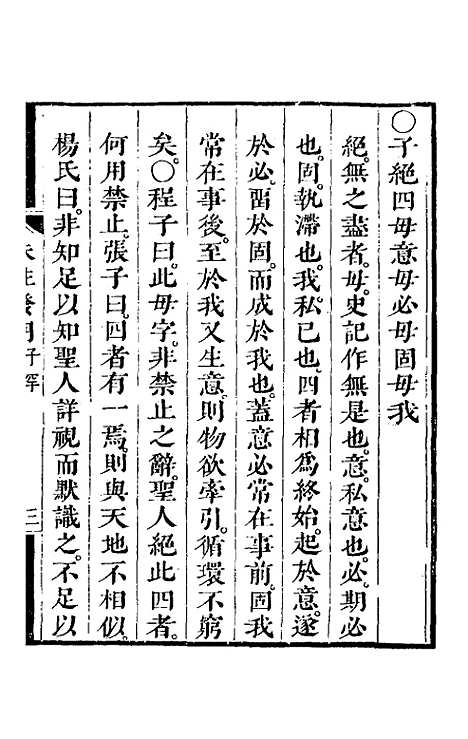 ○子絕四毋意毋必毋固毋我
絕。無之盡者。毋。史記作無是也。意。私意也。必。期必
也。固。執滯也。我。私己也。四者相爲終始。起於意。遂
於必。畱於固。而成於我也。蓋意必常在事前。固我
常在事後。至於我又生意。則物欲牽引。循環不窮
矣。○程子曰。此毋字。非禁止之辭。聖人絕此四者。
何用禁止。張子曰。四者有一焉。則與天地不相似。
楊氏曰。非知足以知聖人詳視而默識之。不足以
朱注發明子罕
三